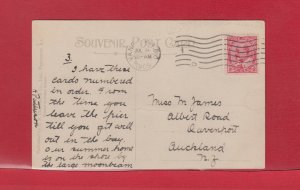 SOUVENIR POST CARD
3.
I have these
cards numbered
in order. From
the time you
leave the pier
till you get well
out in the bay.
Our summer home
is on the shore by
the large moonbeam
Miss M James
Albert Road
Devonport
Auckland
N.Z